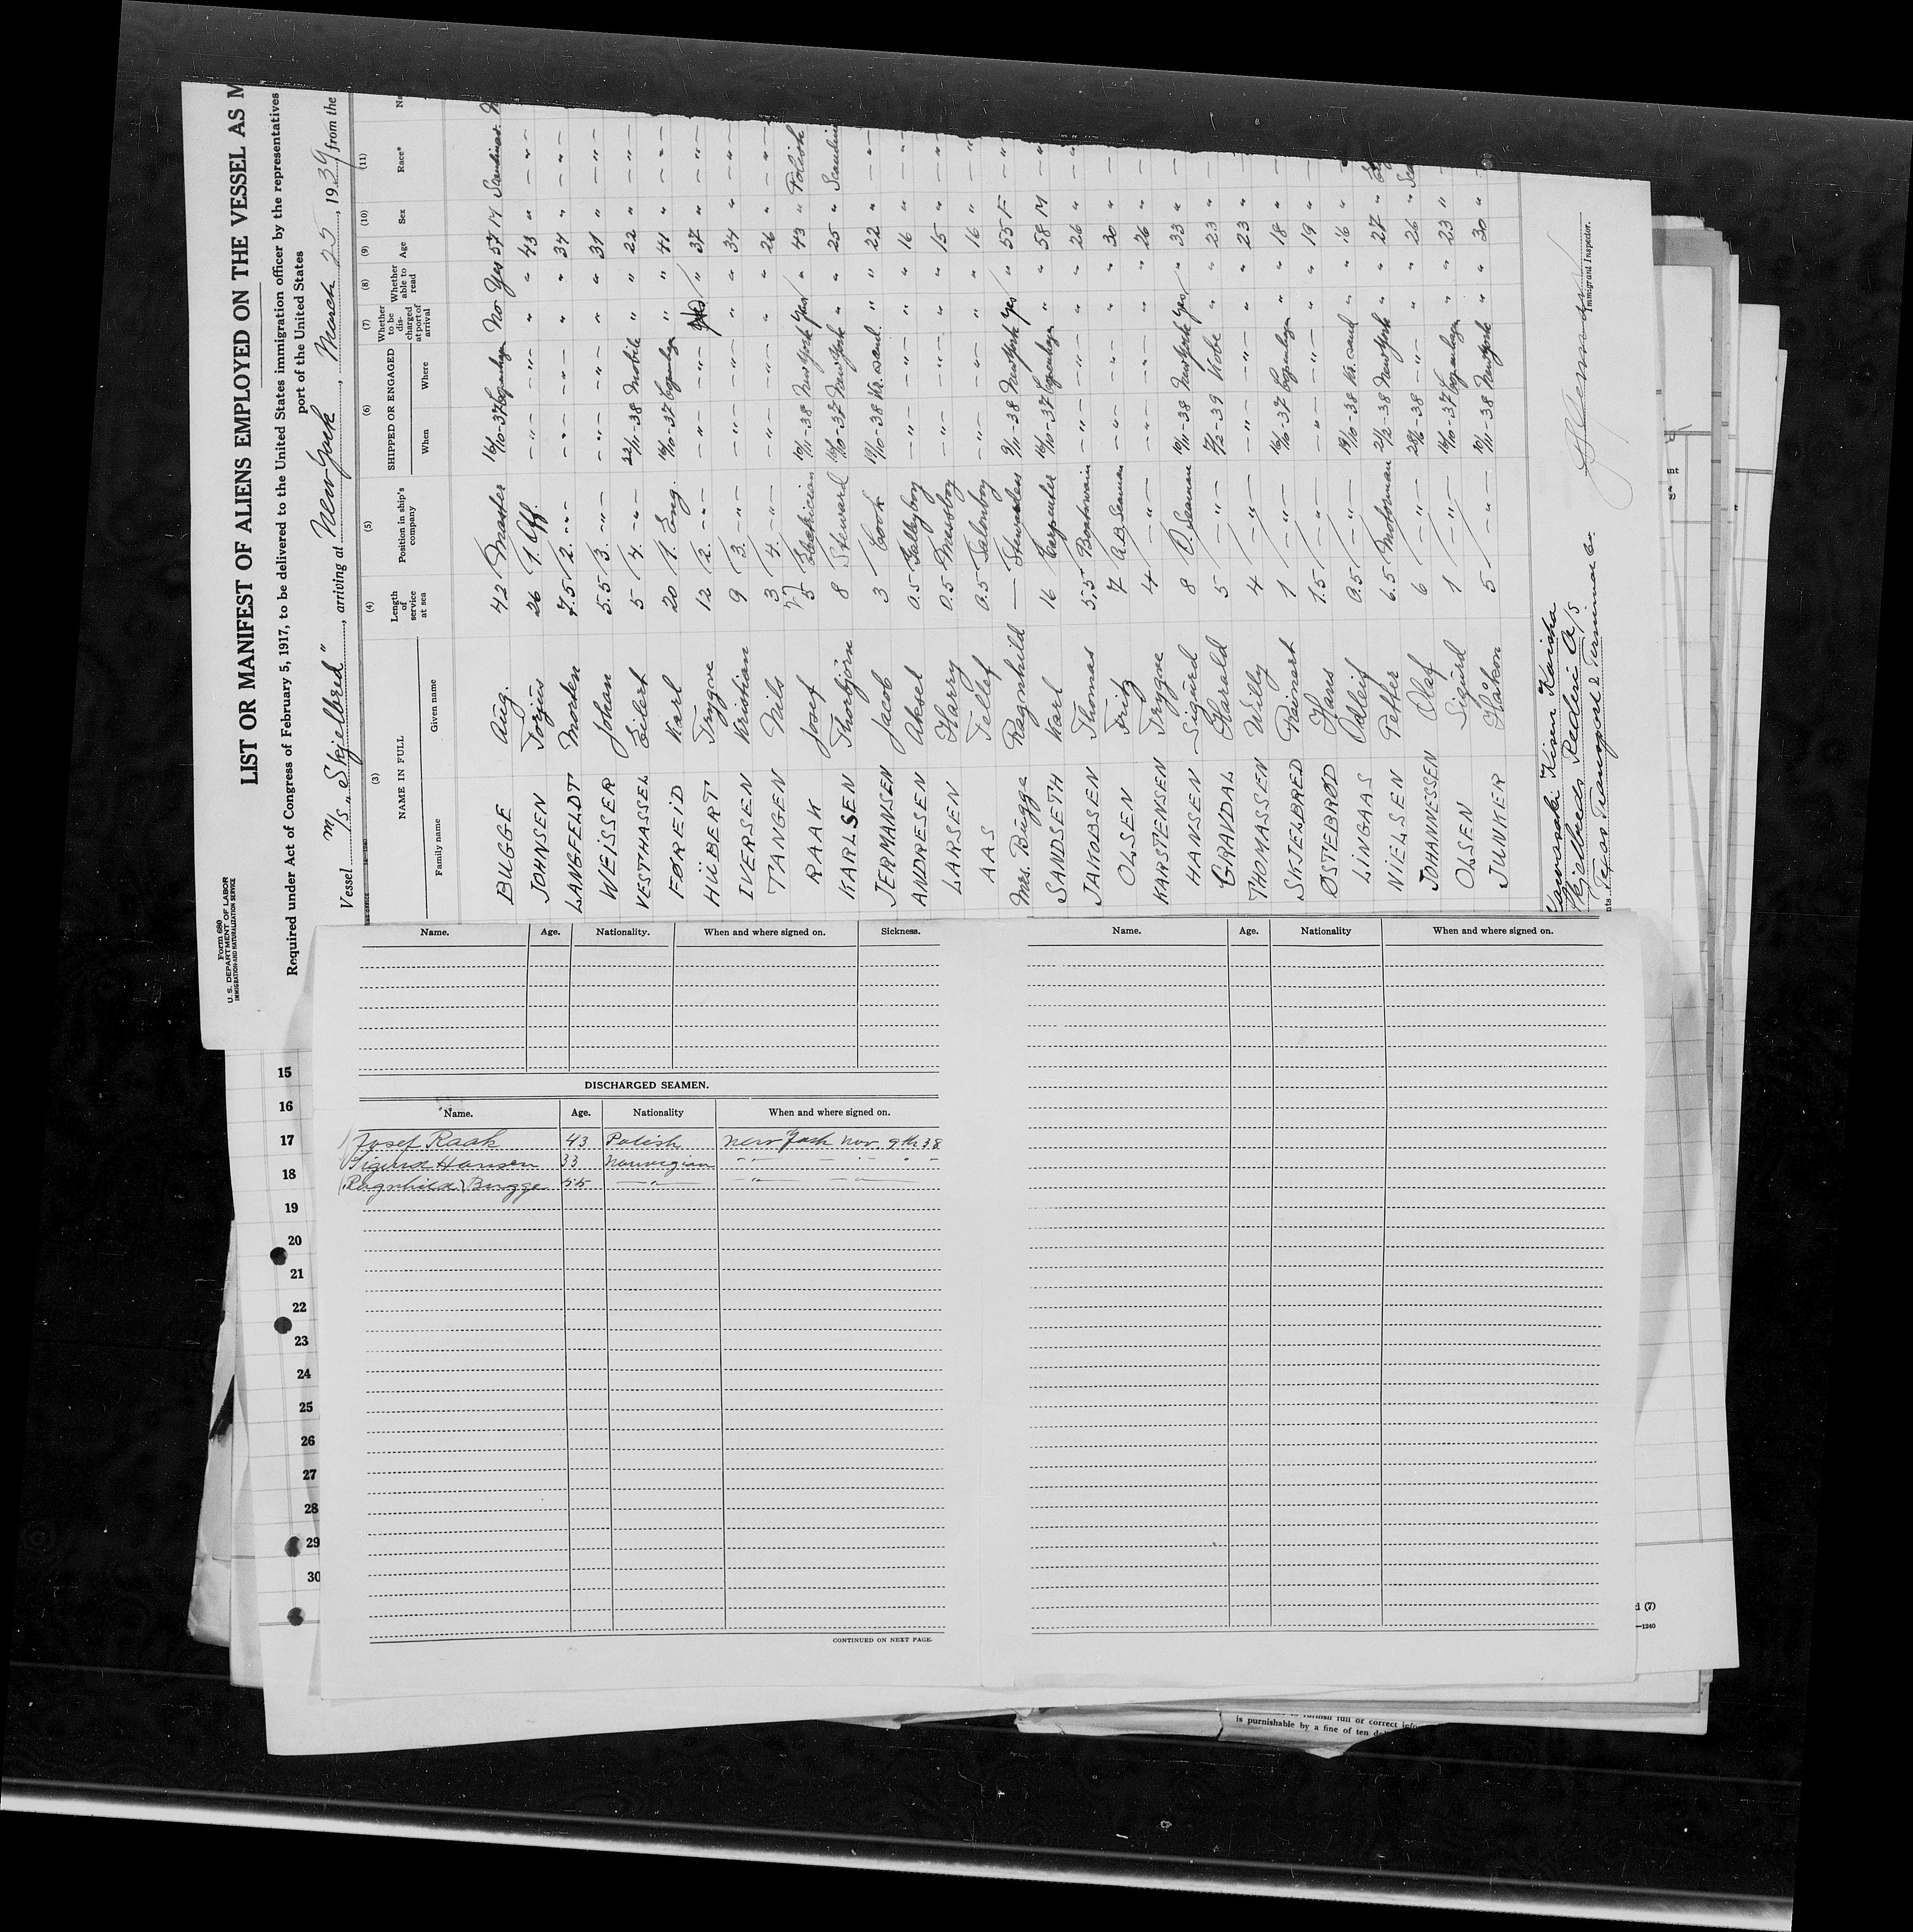 Form 680
U. S. DEPARTMENT OF LABOR
IMMIGRATION AND NATURALIZATION SERVICE
LIST OR MANIFEST OF ALIENS EMPLOYED ON THE VESSEL AS M
Required under Act of Congress of February 5, 1917, to be delivered to the United States immigration officer by the representatives
port of the United States
Vessel M/S „Skjelbred", arriving at New York, March 25, 1939, from the
(3) (4) (5) (6) (7) (8) (9) (10) (11)
NAME IN FULL Length of service at sea Position in ship's company SHIPPED OR ENGAGED Whether to be discharged at port of arrival Whether able to read Age Sex Race* Na
Family name Given name When Where
BUGGE Aug. 42 Master 16/10-37 Copenhagen No Yes 57 M Scandinav.
JOHNSEN Torjus 26 1. Off. — " — " " 43 " — " —
LANGFELDT Morten 7.5 2. - " - — " — " " 34 " — " —
WEISSER Johan 5.5 3. - " - — " — " " 31 " — " —
VESTHASSEL Eilert 5 4. - " - 22/11-38 Mobile " " 22 " — " —
FØREID Karl 20 1. Eng. 16/10-37 Copenhagen " " 41 " — " —
HÜBERT Trygve 12 2. - " - — " — " 37 " — " —
IVERSEN Kristian 9 3. - " - — " — " " 34 " — " —
TANGEN Nils 3 4. - " - — " — " " 26 " — " —
RAAK Josef 5 Electrician 10/11-38 New York Yes " 43 " Polish
KARLSEN Thorbjörn 8 Steward 16/10-37 New York " " 25 " Scandin
JERMANSEN Jacob 3 Cook 19/10-38 Kr.sand. " " 22 " — " —
ANDRESEN Aksel 0.5 Galleyboy — " — " " 16 " — " —
LARSEN Harry 0.5 Messboy — " — " " 15 " — " —
AAS Tellef 0.5 Salonboy — " — " " 16 " "
Mrs. Bugge Ragnhild — Stewardess 9/11-38 New York Yes " 55 F — " —
SANDSETH Karl 16 Carpenter 16/10-37 Copenhagen " " 58 M — "
JAKOBSEN Thomas 5,5 Boatswain — " — " " 26 " — "
OLSEN Fritz 7 A.B. Seaman — " — " " 30 " —
KARSTENSEN Trygve 4 — " — — " — " " 26 " —
HANSEN Sigurd 8 O. Seaman 10/11-38 New York Yes " 33 " —
GRAVDAL Harald 5 — " — 7/2-39 Kobe " " 23 " —
THOMASSEN Willy 4 — " — — " — " " 23 " —
SKJELBRED Reinert 1 — " — 16/10-37 Copenhagen " " 18 " —
ØSTEBRØD Hans 1.5 — " — — " — " " 19 " —
LINGAAS Odleif 0.5 — " — 19/10-38 Kr.sand " " 16 "
NIELSEN Petter 6.5 Motorman New York " " 27 "
JOHANNESSEN Olaf 6 — " — — " — " " 26 " Sca
OLSEN Sigurd 1 — " — 16/10-37 Copenhagen " " 23 "
JUNKER Håkon 5 — " — 10/11-38 New York " " 30 "
Kawasaki Kisen Kaisha
Skjelbreds Rederi A/S
Texas Transport & Terminal Co.
Immigrant Inspector.
Name. Age. Nationality. When and where signed on. Sickness.
DISCHARGED SEAMEN.
Name. Age. Nationality When and where signed on.
Josef Raak 43 Polish New York Nov. 9th 38
Sigurd Hansen 33 Norwegian — " — — " — " —
Ragnhild Bugge 55 — " — — " — — " —
CONTINUED ON NEXT PAGE.
Name. Age. Nationality When and where signed on.
15
16
17
18
19
20
21
22
23
24
25
26
27
28
29
30
(7)
—1240
furnish full or correct info
is punishable by a fine of ten do